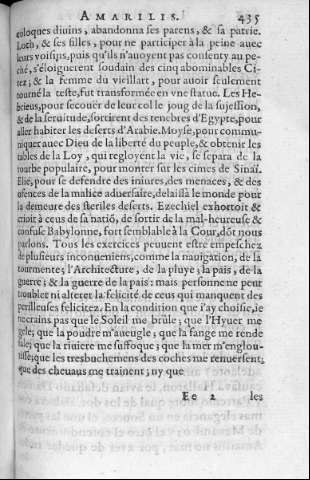 AMARILIS. 435
coloques diuins, abandonna ses parens, & sa patrie.
Loth, & ses filles, pour ne participer à la peine auec
leurs voisins, puis qu'ils n'auoyent pas consenty au pe-
ché, s'éloignerent soudain des cinq abominables Ci-
tez; & la femme du vieillart, pour auoir seulement
tourné la teste, fut transformée en vne statue. Les He-
brieus, pour secouër de leur col le joug de la sujession,
& de la seruitude, sortirent des tenebres d'Egypte, pour
aller habiter les deserts d'Arabie. Moyse, pour commu-
niquer auec Dieu de la liberté du peuple, & obtenir les
tables de la Loy, qui regloyent la vie, se separa de la
tourbe populaire, pour monter sur les cimes de Sinaï.
Elie, pour se defendre des iniures, des menaces, & des
ofences de la malice aduersaire, delaissa le monde pour
la demeure des steriles deserts. Ezechiel exhortoit &
crioit à ceus de sa natiõ, de sortir de la mal-heureuse &
confuse Babylonne, fort semblable à la Cour, dõt nous
parlons. Tous les exercices peuuent estre empeschez
de plusieurs inconueniens, comme la nauigation, de la
tourmente; l'Architecture, de la pluye; la pais, de la
guerre; & la guerre de la pais: mais personne ne peut
troubler ni alterer la felicité de ceus qui manquent des
perilleuses felicitez. En la condition que i'ay choisie, ie
ne crains pas que le Soleil me brûle; que l'Hyuer me
gele; que la poudre m'aueugle; que la fange me rende
sale; que la riuiere me suffoque; que la mer m'englou-
tisse; que les tresbuchemens des coches me renuersent;
que des cheuaus me trainent; ny que
Ee 2 les